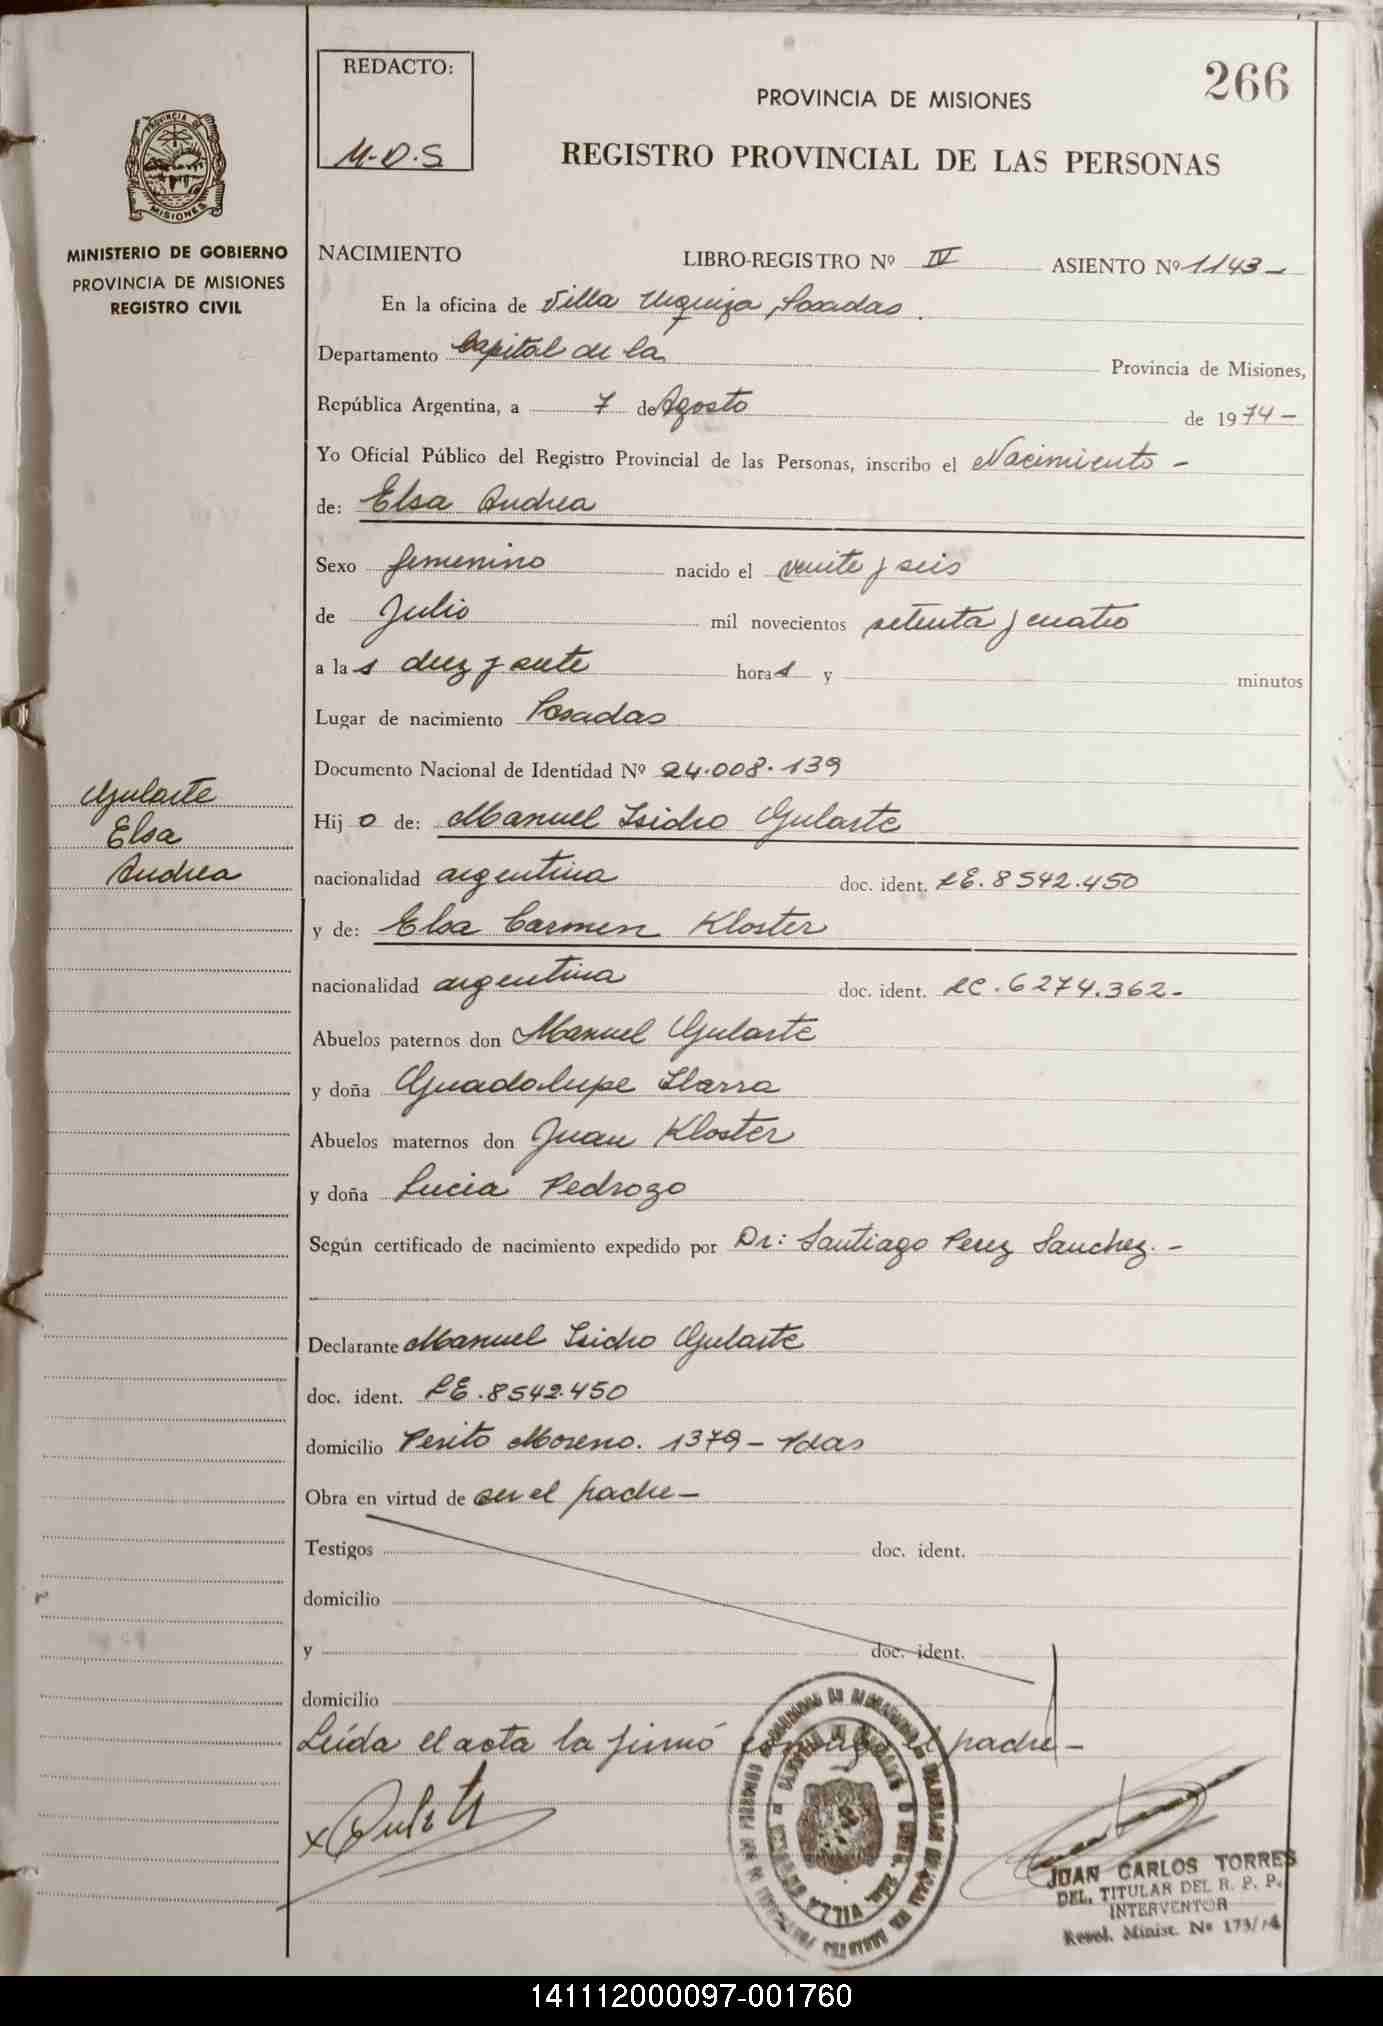 266
REDACTO:
M.D.S
PROVINCIA DE MISIONES
REGISTRO PROVINCIAL DE LAS PERSONAS
PROVINCIA DE
MISIONES
MINISTERIO DE GOBIERNO
PROVINCIA DE MISIONES
REGISTRO CIVIL
NACIMIENTO LIBRO-REGISTRO Nº IV ASIENTO Nº 1143-
En la oficina de Villa Urquiza, Posadas.
Departamento Capital de la Provincia de Misiones,
República Argentina, a 7 de Agosto de 1974-
Yo Oficial Público del Registro Provincial de las Personas, inscribo el Nacimiento -
de: Elsa Andrea
Sexo femenino nacido el veinte y seis
de Julio mil novecientos setenta y cuatro
a las diez y siete horas y minutos
Lugar de nacimiento Posadas
Documento Nacional de Identidad Nº 24.008.139
Gularte
Elsa
Andrea
Hijo de: Manuel Isidro Gularte
nacionalidad argentina doc. ident. LE. 8542.450
y de: Elsa Carmen Kloster
nacionalidad argentina doc. ident. LC. 6274.362-
Abuelos paternos don Manuel Gularte
y doña Guadalupe Ibarra
Abuelos maternos don Juan Kloster
y doña Lucia Pedrozo
Según certificado de nacimiento expedido por Dr: Santiago Perez Sanchez.-
Declarante Manuel Isidro Gularte
doc. ident. LE. 8542.450
domicilio Perito Moreno. 1379- Pdas
Obra en virtud de ser el padre-
Testigos doc. ident.
domicilio
y doc. ident.
domicilio
Leída el acta la firmó conmigo el padre-
JUAN CARLOS TORRES
DEL. TITULAR DEL R. P. P.
INTERVENTOR
Resol. Minist. Nº 173/74
141112000097-001760